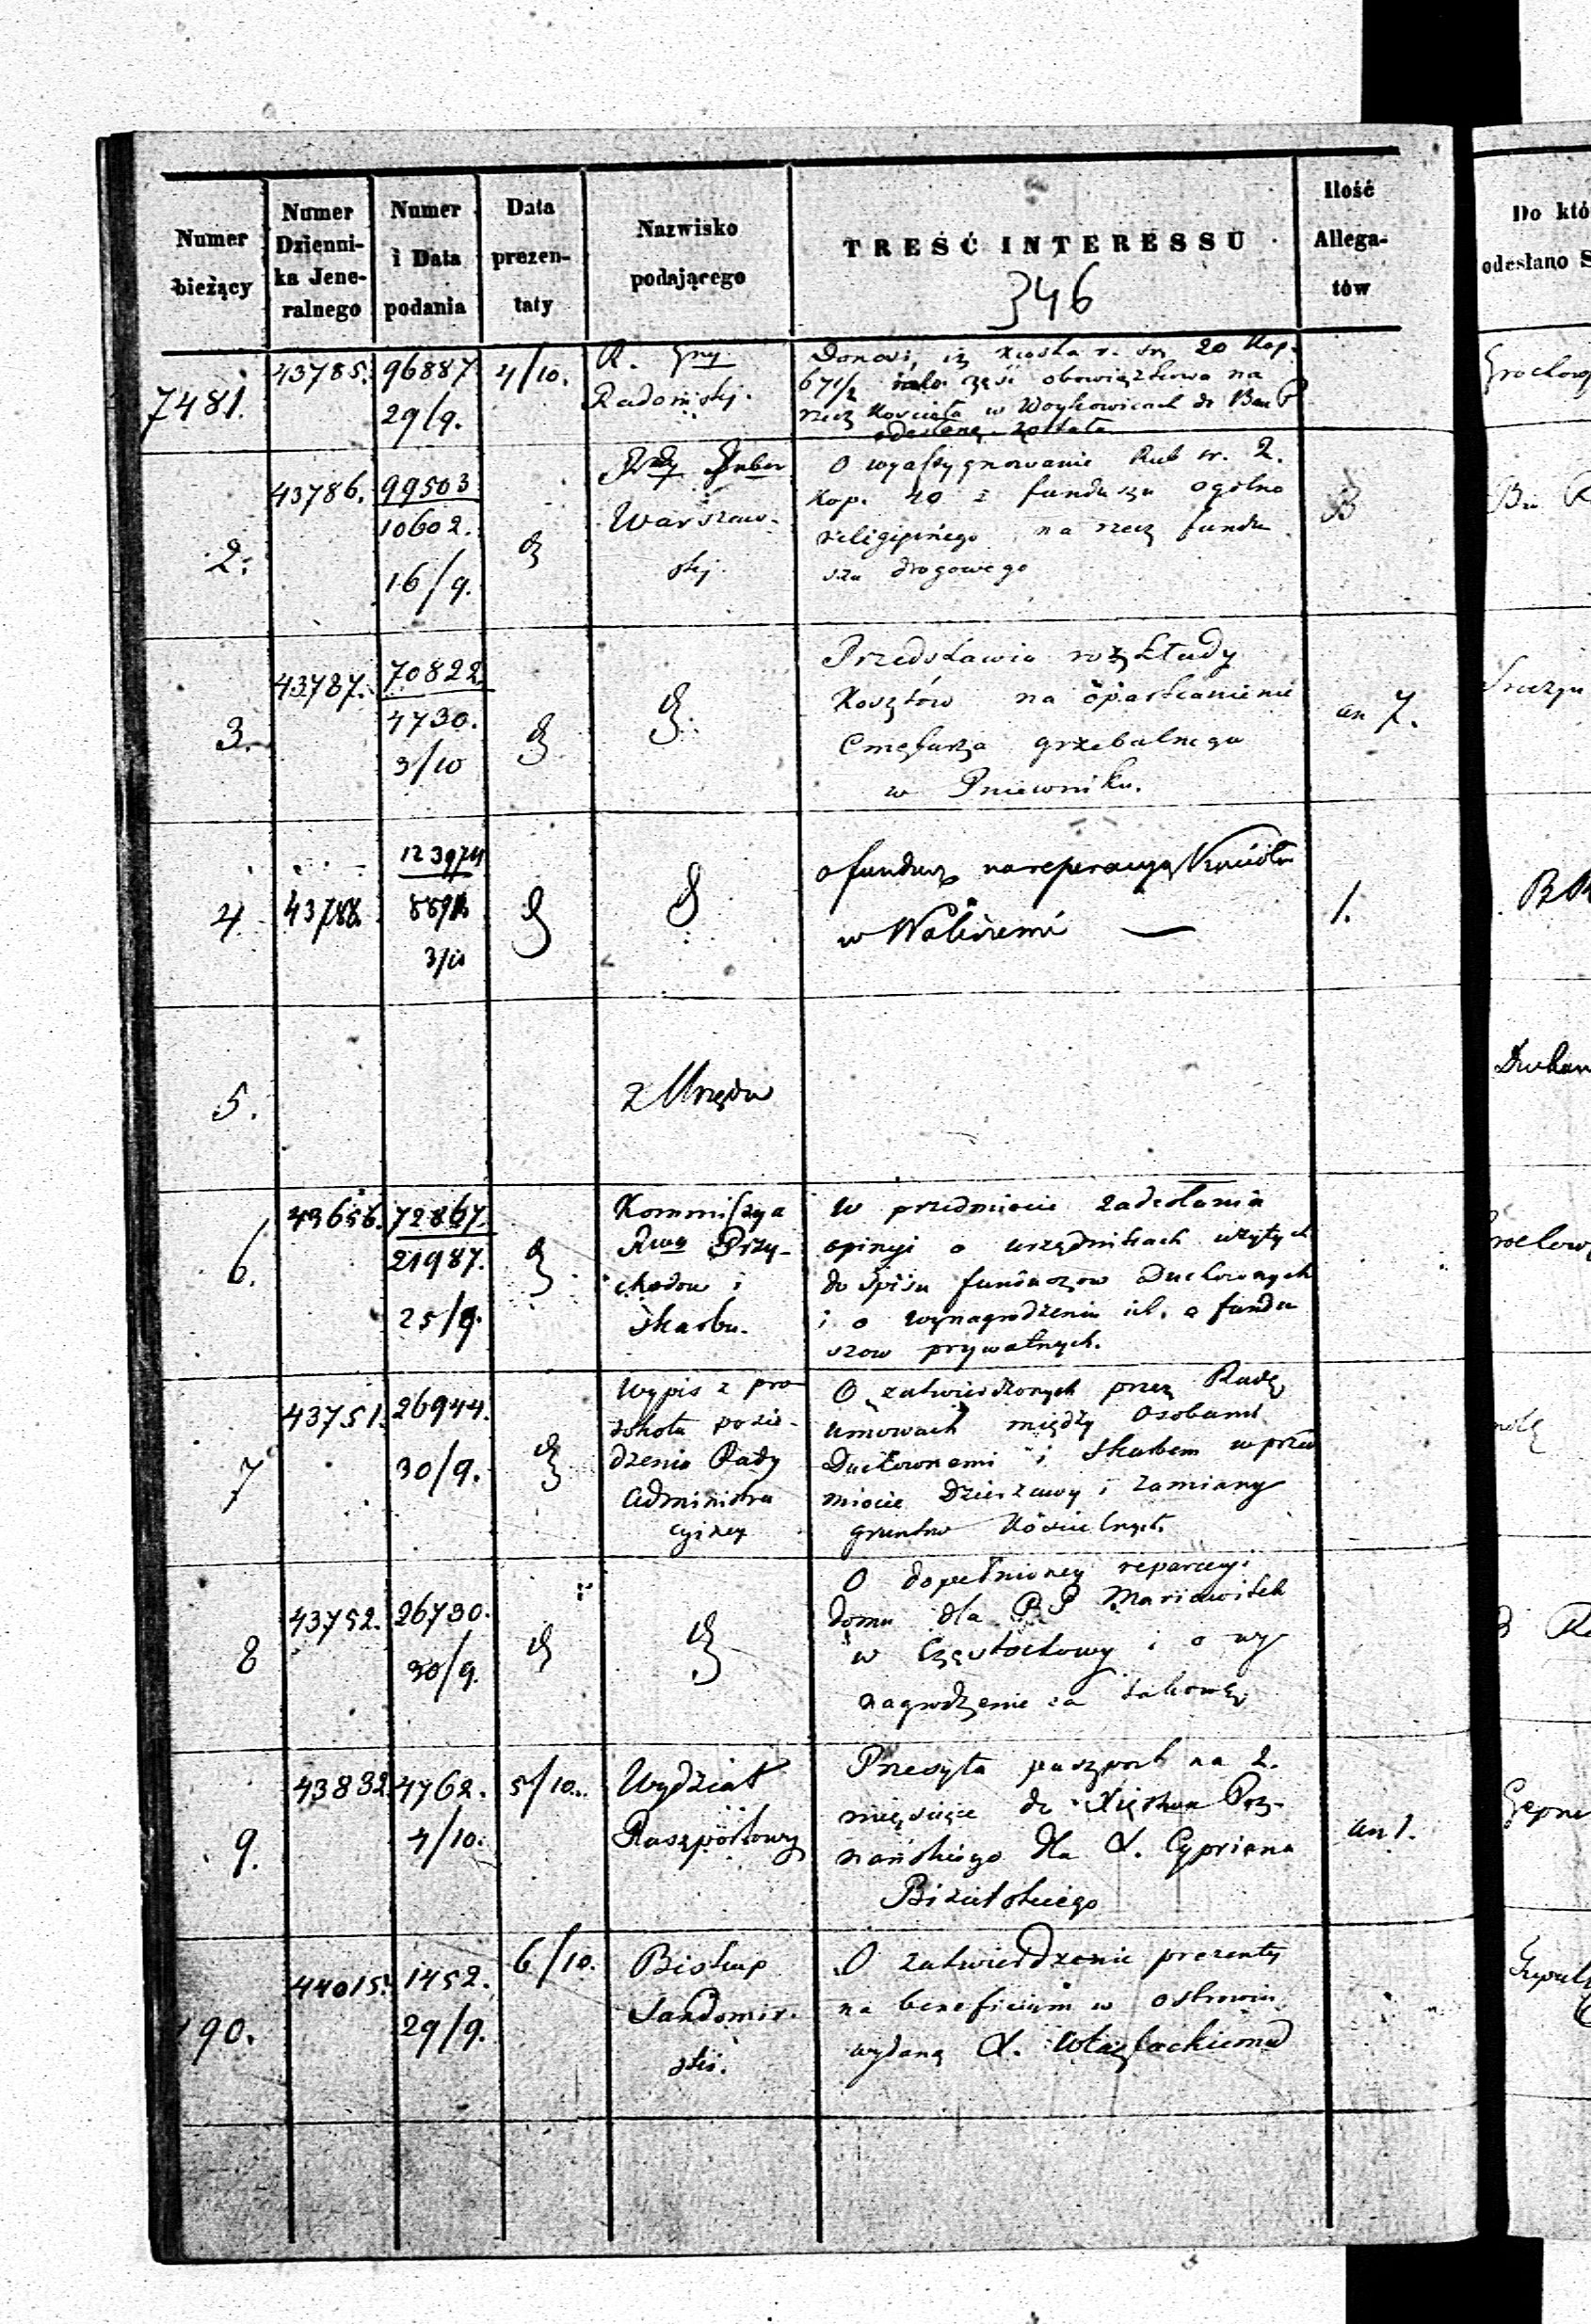 Numer bieżący
Numer Dzienni-ka Jene-ralnego
Numer i Data podania
Data prezen-taty
Nazwisko podającego
TREŚĆ INTERESSU
Ilość Allega-tów
Do któ
odesłano S
346
7481.
43785.
96887
29/9.
4/10.
R. Gny
Radomskij.
Donosi, iż kwota r. sr. 20 Kop.
67 1/2 jako część obowiązkowa na
rzecz Kościoła w Woykowicach do Ban P
odesłaną została
2.
43786.
99503
10602.
16/9.
Warszaw-
skij.
O wyassygnowanie Rub sr. 2.
Kop. 40 z funduszu ogólno
religijnego na rzecz fundu
szu drogowego
3.
43787.
70822.
4730.
3/10
Przedstawia rozkłady
Kosztów na oparkanienie
Cmętarza grzebalnego
w Pniewniku.
an 7.
4.
43788.
3/10
o fundusz na reperacyą Kościoła
w Waliszewi
1.
5.
z Urzędu
6.
43656.
72867.
21987.
25/9.
Kommissya
Rwa Przy-
chodow i
Skarbu.
W przedmiocie zadesłania
opinyi o urzędnikach użytych
do spisu funduszow duchownych
i o wynagrodzeniu ich. z fundu
szow prywatnych.
7
43751.
26944.
30/9.
Wypis z pro
tokołu posie-
dzenia Rady
Administra
cyiney
O zatwierdzonych przez Radę
umowach między Osobami
Duchownemi i Skarbem w przed
miocie Dzierżawy i zamiany
gruntów Kościelnych.
8
43752.
26730.
30/9.
O dopełnioney reparacyi
domu dla PP Mariawitek
w Częstochowy i o wy
nagrodzenie za takową
9.
43832
4762.
4/10.
5/10.
Wydział
Paszportowy
Przesyła paszport na 2.
miesiące do Xięstwa Poz-
nańskiego dla X. Cypriana
an 1.
90.
44015.
1452.
29/9.
6/10.
Biskup
Sandomir-
ski.
O zatwierdzenie prezenty
na beneficium w
wydaną X.